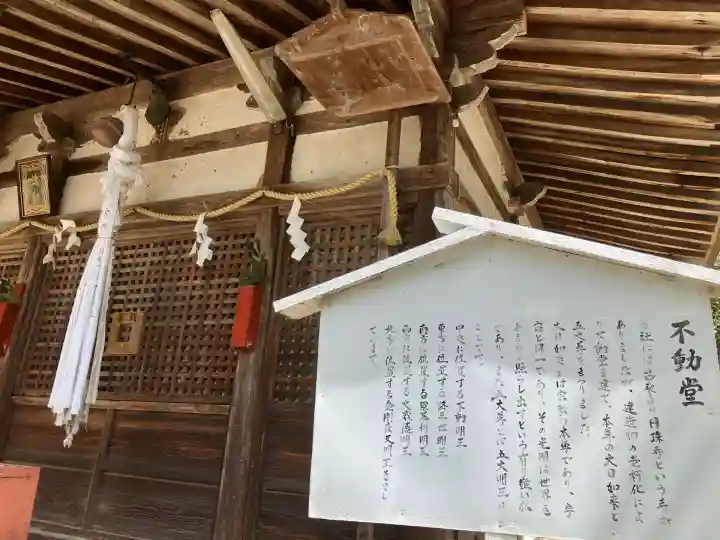 不動堂
当社には昔 円珠寺という寺が
ありましたが、建造物の老朽化によ
り不動堂を建て、本尊の大日如来と
五大尊をまつりました。
大日如来とは密教の本尊であり、宇
宙と は一であり、その光明は世界を
照らし出すという有り難い仏
であり、また五大尊とは五大明王の
ことで
中央に位置する不動明王
東方に位置する降三世明王
南方に位置する軍荼利明王
西方に位置する大威徳明王
北方に位置する金剛夜叉明王をさし
ています